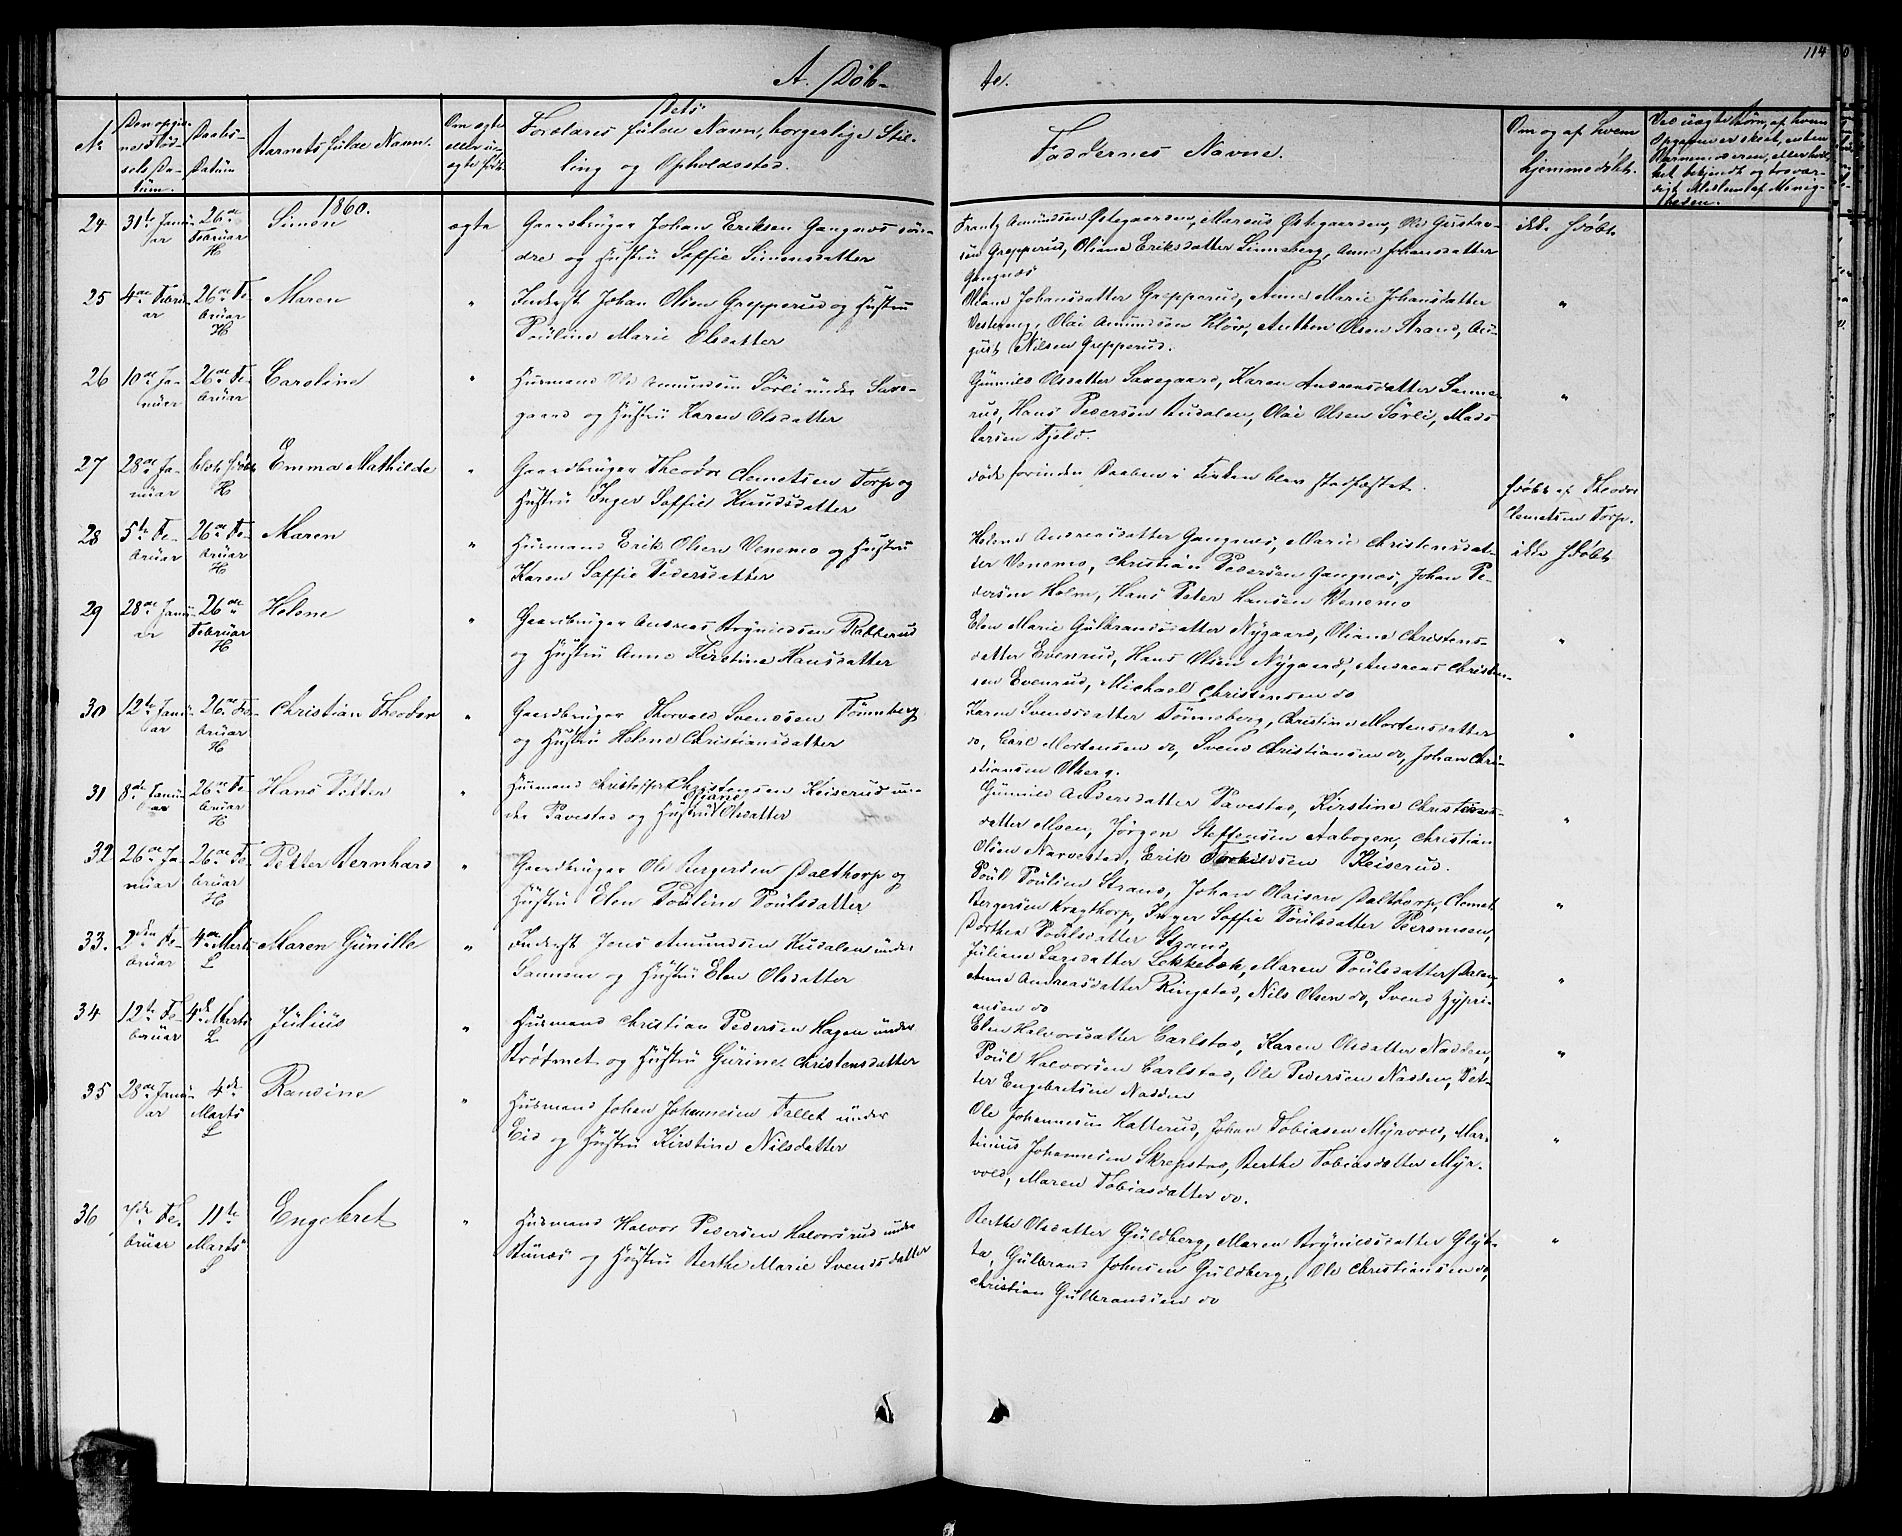 114
A. Döb-
te.
No
Den opgivne Födselsdatum.
Daabsdatum
Barnets fulde Navn.
Om ægte eller uægte født
Dets Forældres fulde Navn, borgerlige Stilling og Opholdssted.
Faddernes Navne.
Om og af hvem hjemmedöbt.
1860.
24 31te Januar 26de Februar H Simon ægte
Gaardbruger Johan Eriksen Gangnæs søndre og Hustru Saffie Simensdatter
Frantz Amundsen Østegaarden, Marcus Østegaarden, Ole Gustavsen Grepperud, Oliane Eriksdatter Linneberg, Anne Johansdatter Gangnæs
ikke hdöbt.
25 4de Februar 26de Februar H Maren "
Inderst Johan Olsen Grepperud og Hustru Pouline Marie Olsdatter
Oliane Johansdatter Grepperud, Anne Marie Johansdatter Vestereng, Olai Amundsen Kløv, Anthon Olsen Strand, August Nilsen Grepperud.
"
26 10de Januar 26de Februar Caroline "
Husmand Ole Amundsen Sörli under Saxegaard og Hustru Karen Olsdatter
Gunnild Olsdatter Saxegaard, Karen Andreasdatter Sannerud, Hans Pedersen Ausdalen, Olai Olsen Sörli, Mads Larsen Fjeld.
"
27 28de Januar blev hdöbt H Emma Mathilde "
Gaardbruger Theodor Clemetsen Torp og Hustru Inger Saffie Knudsdatter
døde forinden Daaben i Kirken blev stadfæstet.
hdöbt af Theodor Clemetsen Torp.
28 5te Februar 26de Februar H Maren "
Husmand Erik Olsen Venemo og Hustru Karen Saffie Pedersdatter
Helene Andreasdatter Gangnæs, Marie Christensdatter Venemo, Christian Pedersen Gangnæs, Johan Pedersen Holm, Hans Peter Hansen Venemo
ikke hdöbt
29 28de Januar 26de Februar H Helene "
Gaardbruger Andreas Brynildsen Ratterud og Hustru Anne Kirstine Hansdatter
Elen Marie Gulbrandsdatter Nygaard, Oliane Christensdatter Evenrud, Hans Olsen Nygaard, Andreas Christensen Evenrud, Michael Christensen do
"
30 12te Januar 26de Februar H Christian Theodor "
Gaardbruger Thorvald Svendsen Tønneberg og Hustru Helene Christiansdatter
Karen Svendsdatter Tønneberg, Christine Mortensdatter do, Carl Mortensen do, Svend Christiansen do, Johan Christiansen Olberg.
"
31 8de Januar 26de Februar H Hans Petter "
Husmand Christopher Christensen Keiserud under Pavestad og Hustru Oliane Olsdatter
Gunnild Andersdatter Pavestad, Kirstine Christensdatter Moen, Jörgen Steffensen Aabogen, Christian Olsen Narvestad, Erik Torkildsen Keiserud.
"
32 26de Januar 26de Februar H Petter Bernhard "
Gaardbruger Ole Bergersen Dalthorp og Hustru Elen Pouline Poulsdatter
Poul Poulsen Strand, Johan Olaisen Dalthorp, Clemet Bergersen Kragthorp, Inger Saffie Poulsdatter Peersmoen, Dorthea Poulsdatter Strand
"
33. 2den Februar 4de Marts L Maren Gunille "
Inderst Jens Amundsen Ausdalen under Sannene og Hustru Elen Olsdatter
Juliane Larsdatter Lekkebæk, Maren Poulsdatter Dalen, Anne Andreasdatter Ringstad, Nils Olsen do, Svend Zypriansen do
"
34 12te Februar 4de Marts L Julius "
Husmand Christian Pedersen Hagen under Brøtmet og Hustru Gurine Christensdatter
Elen Halvorsdatter Carlstad, Karen Olsdatter Nadden, Poul Halvorsen Carlstad, Ole Pedersen Nadden, Petter Engebretsen Nadden
"
35 28de Januar 4de Marts L Randine "
Husmand Johan Johannesen Fallet under Eid og Hustru Kirstine Nilsdatter
Ole Johannesen Katterud, Johan Tobiasen Myrvold, Martinius Johannesen Skrepstad, Berthe Tobiasdatter Myrvold, Maren Tobiasdatter do.
"
36 7de Februar 11te Marts S Engebret "
Husmand Halvor Pedersen Halvorsrud under Runæs og Hustru Berthe Marie Svendsdatter
Berthe Olsdatter Guldberg, Maren Brynildsdatter Gulbrand Johnsen Guldberg, Ole Christiansen do, Christian Gulbrandsen do
"